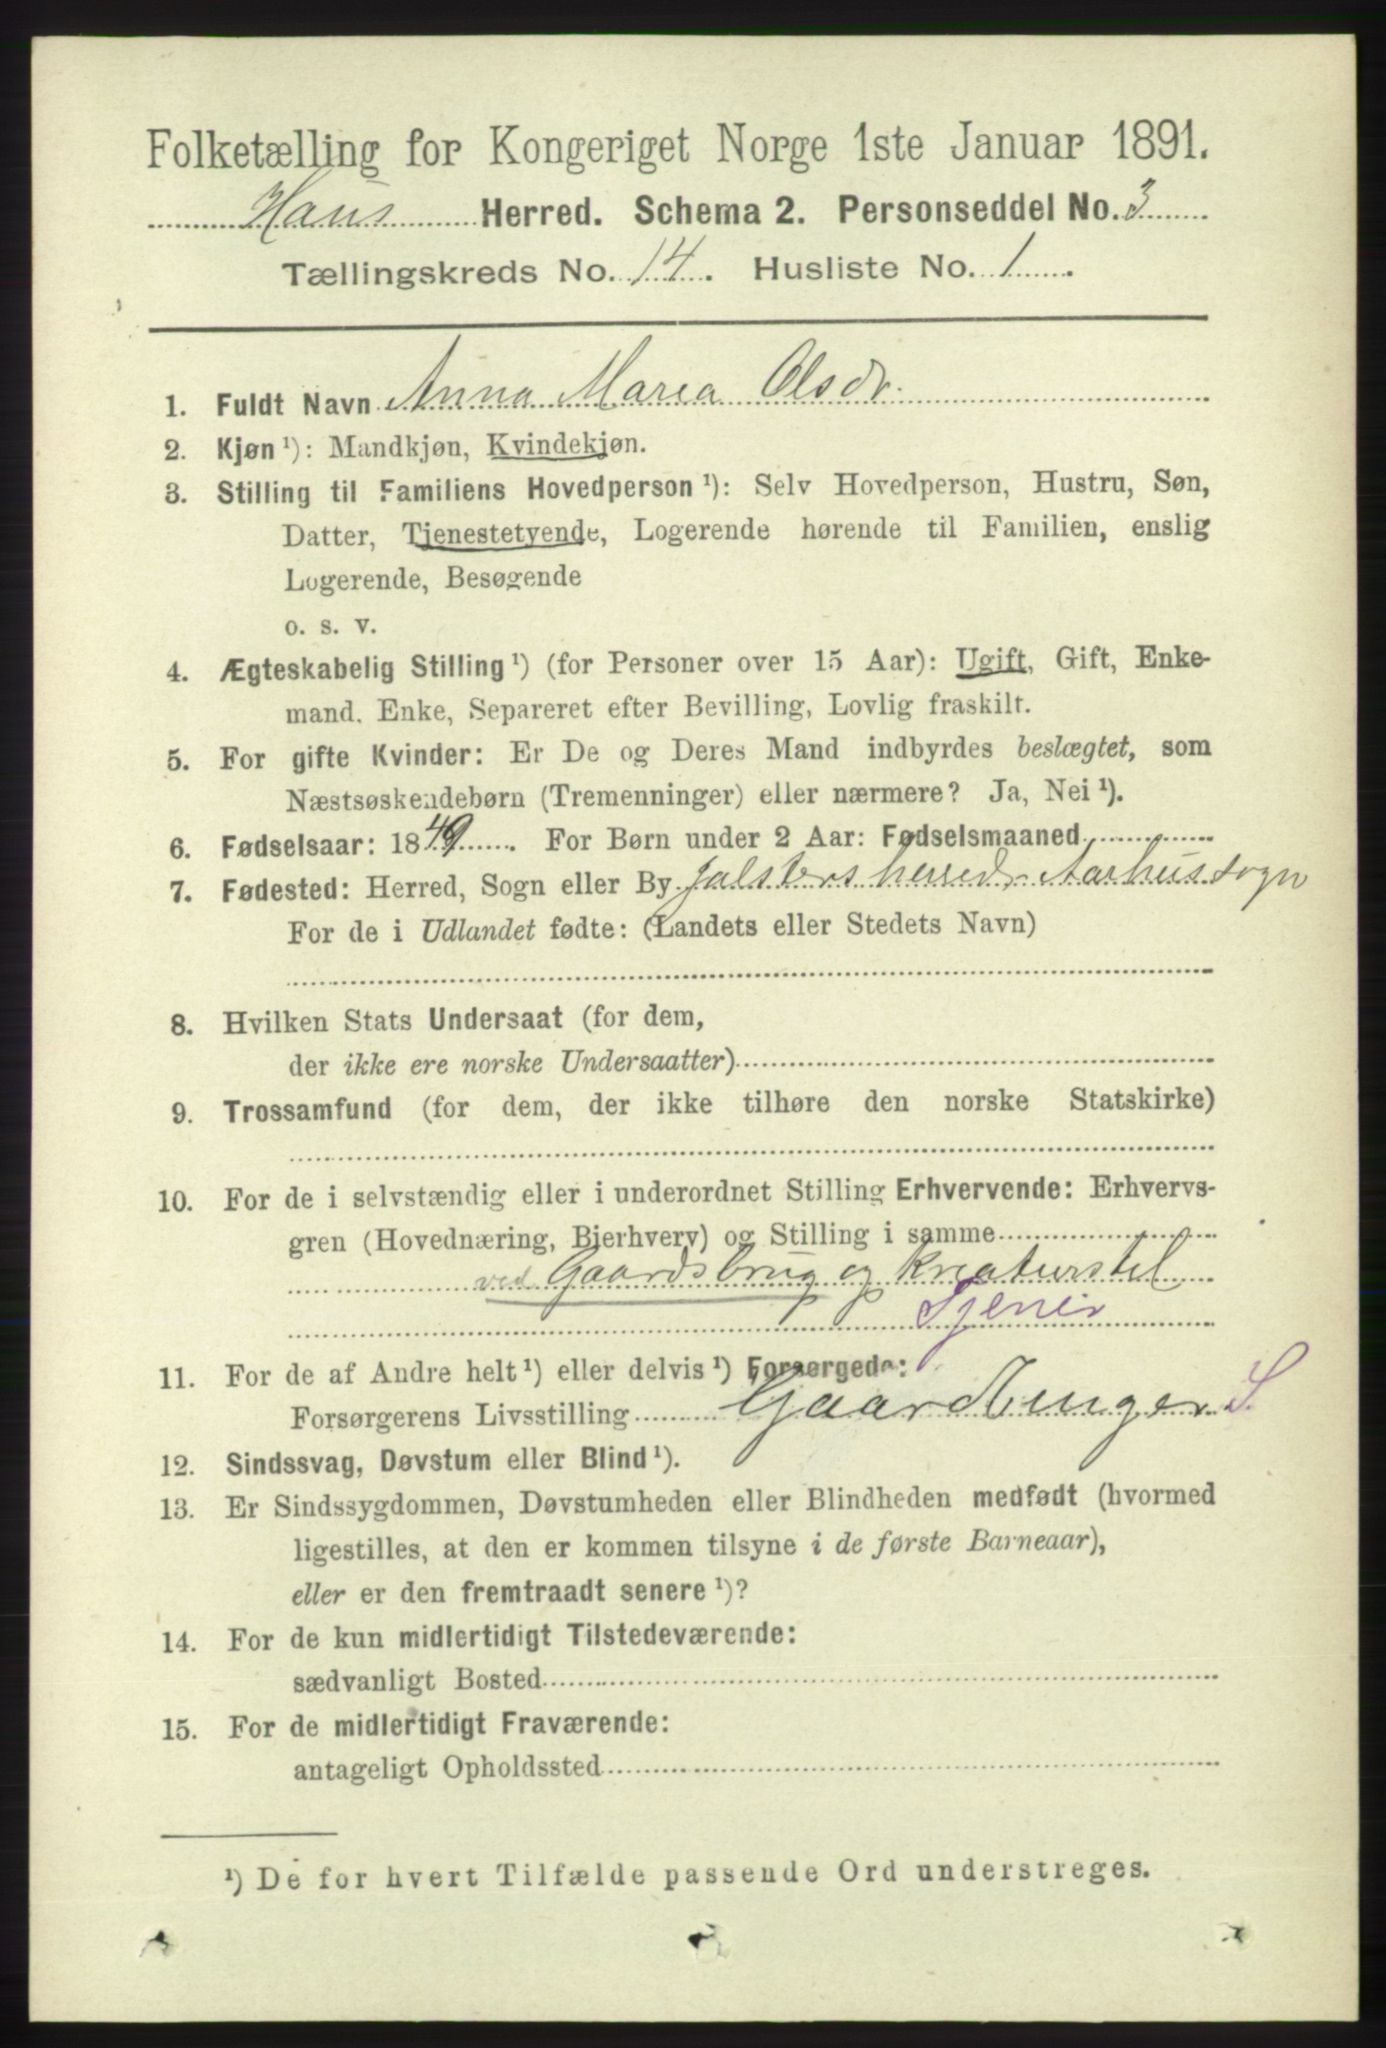 Folketælling for Kongeriget Norge 1ste Januar 1891.
Haus Herred. Schema 2. Personseddel No. 3
Tællingskreds No. 14. Husliste No. 1.
1. Fuldt Navn Anna Maria Olsdr.
2. Kjøn ¹): Mandkjøn, Kvindekjøn.
3. Stilling til Familiens Hovedperson ¹): Selv Hovedperson, Hustru, Søn,
Datter, Tjenestetyende, Logerende hørende til Familien, enslig
Logerende, Besøgende
o. s. v.
4. Ægteskabelig Stilling ¹) (for Personer over 15 Aar): Ugift, Gift, Enke-
mand, Enke, Separeret efter Bevilling, Lovlig fraskilt.
5. For gifte Kvinder: Er De og Deres Mand indbyrdes beslægtet, som
Næstsøskendebørn (Tremenninger) eller nærmere? Ja, Nei ¹).
6. Fødselsaar: 1849. For Børn under 2 Aar: Fødselsmaaned
7. Fødested: Herred, Sogn eller By Jølsters herred Aarhus sogn
For de i Udlandet fødte: (Landets eller Stedets Navn)
8. Hvilken Stats Undersaat (for dem,
der ikke ere norske Undersaatter)
9. Trossamfund (for dem, der ikke tilhøre den norske Statskirke)
10. For de i selvstændig eller i underordnet Stilling Erhvervende: Erhvervs-
gren (Hovednæring, Bierhverv) og Stilling i samme
ved Gaardsbrug og kreaturstel
Tjener
11. For de af Andre helt ¹) eller delvis ¹) Forsørgede:
Forsørgerens Livsstilling Gaardbruger S
12. Sindssvag, Døvstum eller Blind ¹).
13. Er Sindssygdommen, Døvstumheden eller Blindheden medfødt (hvormed
ligestilles, at den er kommen tilsyne i de første Barneaar),
eller er den fremtraadt senere ¹)?
14. For de kun midlertidigt Tilstedeværende:
sædvanligt Bosted
15. For de midlertidigt Fraværende:
antageligt Opholdssted
¹) De for hvert Tilfælde passende Ord understreges.